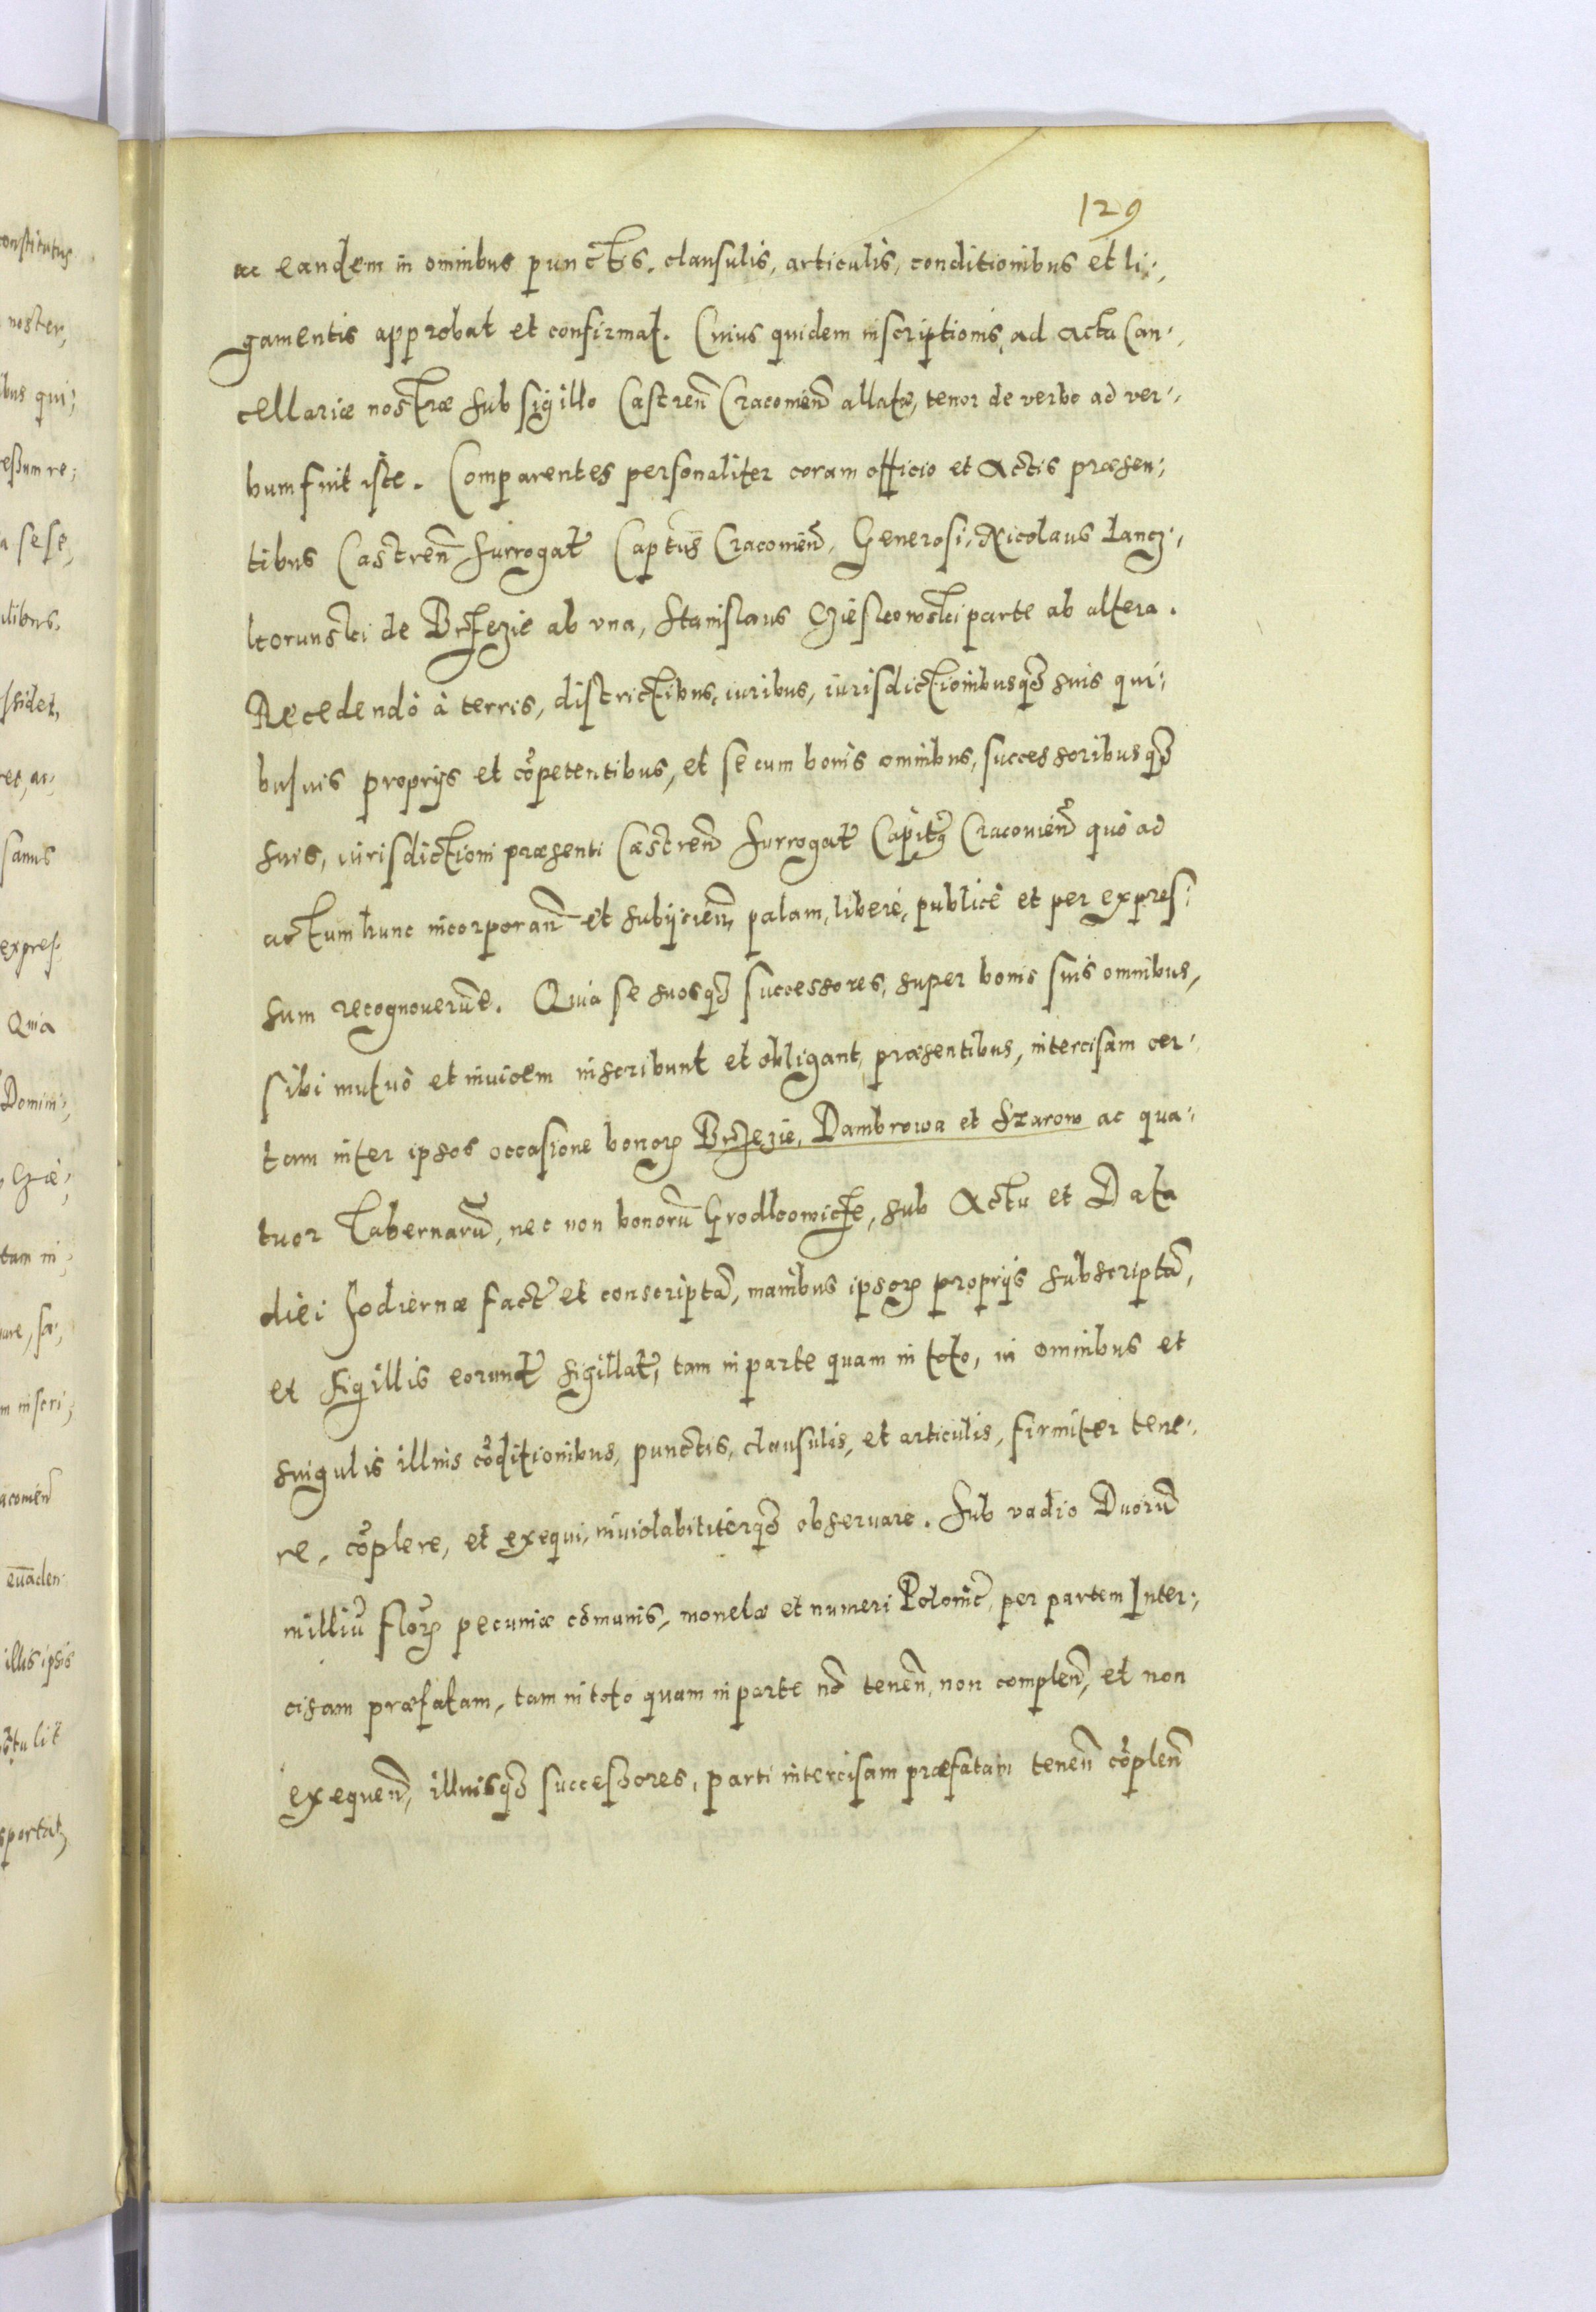 129
ac eandem in omnibus punctis, clausulis, articulis, conditionibus et li-
gamentis approbat et confirmat. Cuius quidem inscriptionis, ad Acta Can-
cellariæ nostræ sub sigillo Castren̄ Cracouien̄ allatæ, tenor de verbo ad ver-
bum fuit iste. Comparentes personaliter coram officio et Actis præsen-
tibus Castren̄ surrogat Cracouien̄, Generosi, Nicolaus Lancz-
korunski de Brzezie ab vna, Stanislaus parte ab altera.
Recedendo à terris, districtibus, iuribus, iurisdictionibusq̃ suis qui-
busuis proprijs et cõpetentibus, et se cum bonis omnibus, successoribusq̃
suis, iurisdictioni præsenti Castren̄ surrogat Cracouien̄ quo ad
actum hunc incorporan̄ et subijcien̄, palam, liberè, publicè et per expres-
sum recognouerunt. Quia se suosq̃ successores, super bonis suis omnibus,
sibi mutuò et inuicem inscribunt et obligant, præsentibus, intercisam cer-
tam inter ipsos occasione bonoꝝ Brzezie, Dambrowa et Szarow ac qua-
tuor Tabernarũ, nec non bonorũ Grodkowicze, sub Actu et Data
diei hodiernæ fact et conscriptã, manibus ipsoꝝ proprijs subscriptã,
et sigillis eorund sigillat, tam in parte quam in toto, in omnibus et
singulis illius cõditionibus, punctis, clausulis, et articulis, firmiter tene-
re, cõplere, et exequi, inuiolabiliterq̃ obseruare. Sub vadio Duorũ
milliũ floꝝ pecuniæ cõmunis, monetæ et numeri Polonic, per partem Inter-
cisam præfatam, tam in toto quam in parte nõ tenen̄, non complen̄, et non
exequen̄, illiusq̃ successores, parti intercisam præfatam tenen̄ cõplen̄